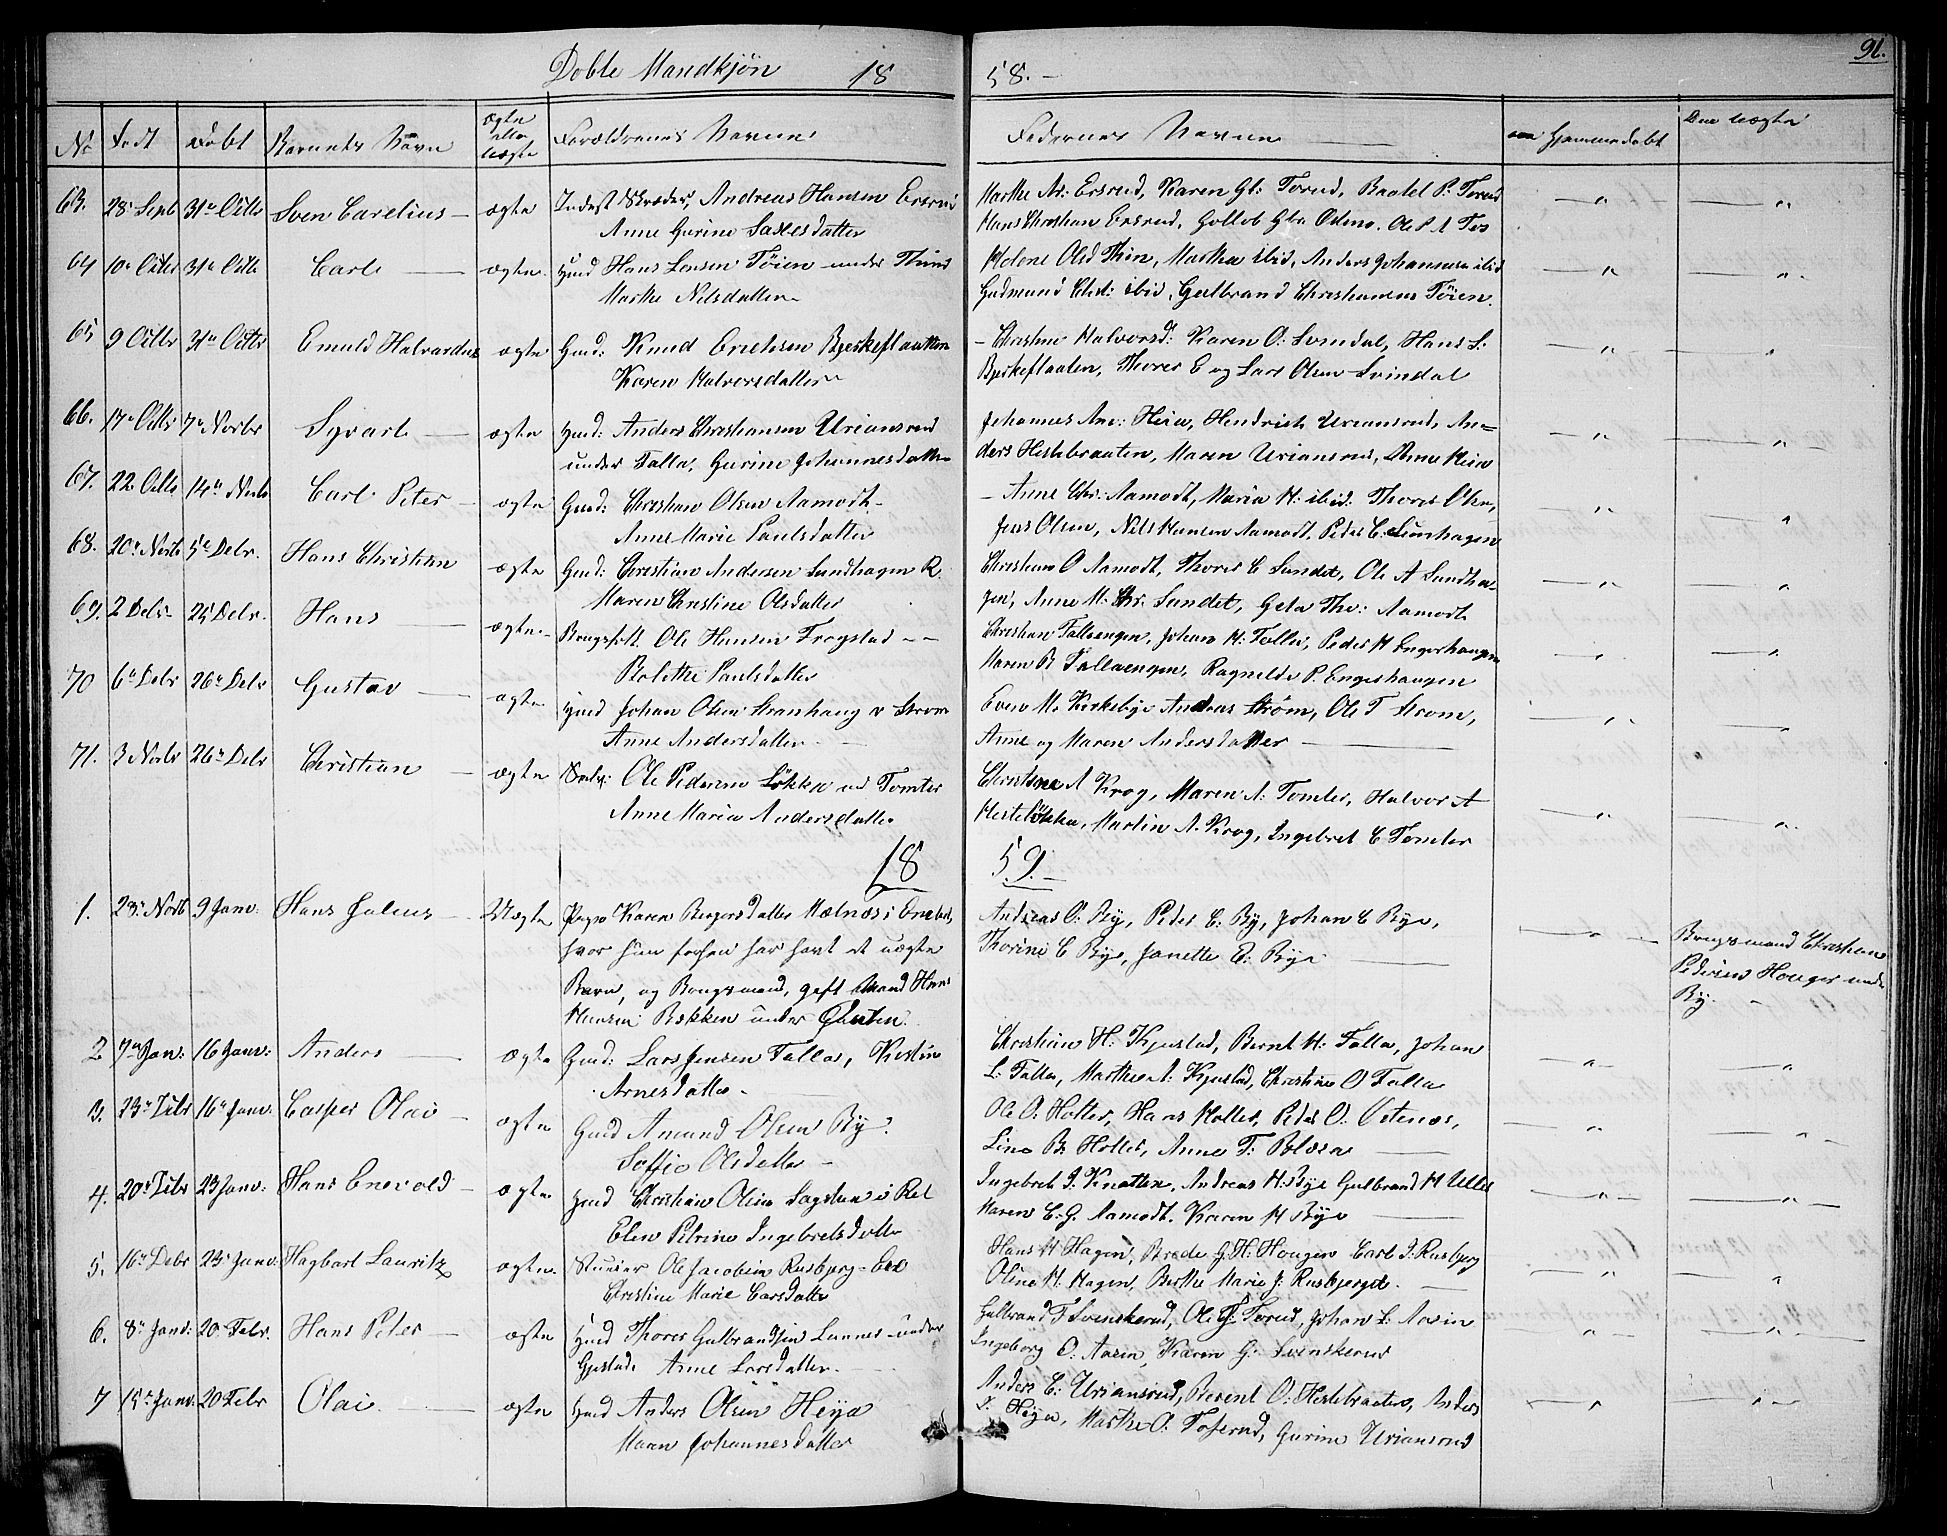 Døbte Mandkjøn 18
58.-
91.
No Født Døbt Barnets Navn ægte eller uægte Forældrenes Navne
Faddernes Navne om Hjemmedøbt Den uægte
63. 28 Septb 31te Octbr Sven Carelius - ægte Inderst Skræder, Andreas Hansen Ersrud
Anne Gurine Saxesdatter
Marthe Ar: Ersrud, Karen Gl: Torud, Baatel P: Torud
Hans Christian Ersrud, Gollob Gl: Ole P A
64 10de Octbr 31te Octb Carl ægte Hmd Hans Larsen Töien under Thini
Marthe Nilsdatter
Helene Olsd Thin, Marthea ibid, Anders Johansen ibid
Gudmund Christ: ibid, Gulbrand Christiansen Töien.
65 9 Octbr 31te Octbr Emuld Halvardus ægte Gmd: Knud Erichsen Bjerkeflaatten
Karen Halvorsdatter
- Christine Halvorsd: Karen O: Svindal, Hans L:
Bjerkeflaaten, Thorer E og Lars Olsen Svindal
66. 17de Octbr 7de Novbr Syvart ægte Hmd: Anders Christiansen Uriansrud
under Talla, Gurine Johannesdatter
Johannes An: Heia, Hendrich Uriansrud, An=
ders Hestebraaten, Maren Uriansrud, Anne Heia
67. 22 Octbr 14de Novbr Carl Peter - ægte Gmd: Christian Olsen Aamodt
Anne Marie Paulsdatter
- Anne Chr: Aamodt, Maria H: ibid: Thorer Olsen,
Jens Olsen, Nils Hansen Aamodt, Peder C. Sundhagen
68. 20de Novb 5te Debr. Hans Christian ægte Gmd: Christian Andersen Sundhagen R.
Maren Christine Olsdatter
Christian O Aamodt, Thorer C Sundet, Ole A Sundha-
gen, Anne M. Chr. Sundet, Gela Tho: Aamodt
69. 2 Debr 25 Debr. Hans ægte Brugsfolk. Ole Hansen Frogstad
Bolethe Paulsdatter
Christian Tallaengen, Johan H: Talla, Peder H Engerhaugen
Maren B Tallaengen, Ragnilde P. Engerhaugen
70 6te Debr 26de Debr Gustav ægte Hmd Johan Olsen Stranhaug v Strøm
Anne Andersdatter
Even M. Kirkebye Andreas Strøm, Ole T Strøm,
Anne og Maren Andersdatter
71. 3 Novbr 26de Debr Christian ægte Selv: Ole Pedersen Løkka ud Tomter
Anne Maria Andersdatter
Christine A Krog, Maren A: Tomter, Halvor A
Hesteløkka, Martin A. Krog, Ingebret C Tomter
18
59.-
1. 23de Novb 9 Janv: Hans Julius Uægte Pige Karen Birgersdatter Melnæs i Enebak,
hvor hun forhen har havt et uægte
Barn, og Brugsmand, gift Mand Hans
Hansen Bakken under
Andreas O: By, Peder C. By, Johan C Bye,
Thorine C Bye, Janette E: Bye
Brugsmand Christian
Pedersen Houger under
By.
2 7de Jan: 16 Janv: Anders ægte Gmd: Lars Jensen Talla, Kirstin
Arnesdatter
Christian H: Kjustad, Bernt H: Talla, Johan
L: Talla, Marthe A: Kjustad, Christine O Talla
3. 23de Debr 16de Janv. Casper Olai ægte Gmd Amund Olsen By.
Soffie Olsdatter
Ole O: Holter, Hans Holter, Peder O: Østenæs,
Line B: Holter, Anne T:
4. 20de Debr 23 Janv: Hans Enevold ægte Hmd Christian Olsen Sagstuen i
Elen Petrine Ingebretsdatter
Ingebret J. Knatten, Andreas H: Bye Gulbrand H
Maren C. G. Aamodt. Karen H Bye
5. 16de Debr 23de Janv: Hagbart Lauritz ægte Ole Jacobsen Rusbjerg
Christine Marie Larsdatter
Hans H Hagen, Brede G. H: Hougen Carl J. Rusbjerg
Oline H. Hagen, Berthe Marie J: Rusbjerget.
6. 8de Janv: 20 Febr. Hans Peter ægte Hmd Thorer Gulbrandsen Lunnes under
Gjestad: Anne Larsdatter
Gulbrand T Svenskerud, Ole G Torud, Johan L: Aasen
Ingeborg O: Aasen, Karen G: Svenskerud
7 15de Janv: 20 Febr Olai ægte Hmd Anders Olsen Heya
Maren Johannesdatter
Anders C: Uriansrud, Berent O: Hestebraaten, Anders
L: Heya, Marthe O: Toserud, Gurine Uriansrud